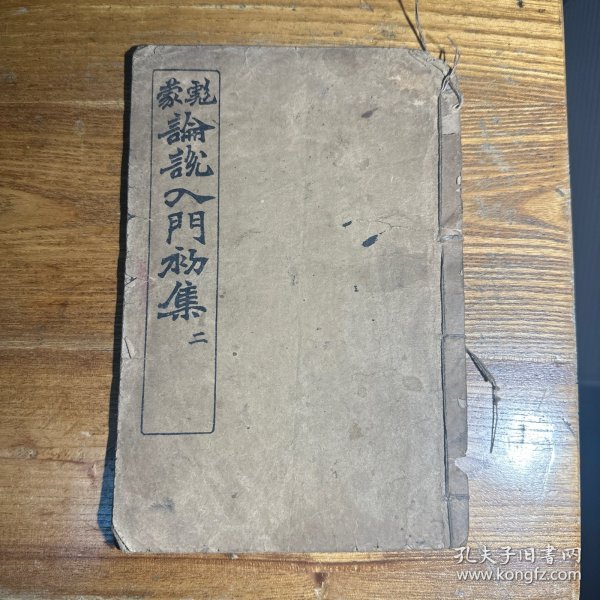 彪蒙論說入門初集二
孔夫子旧書网
www.kongfz.com